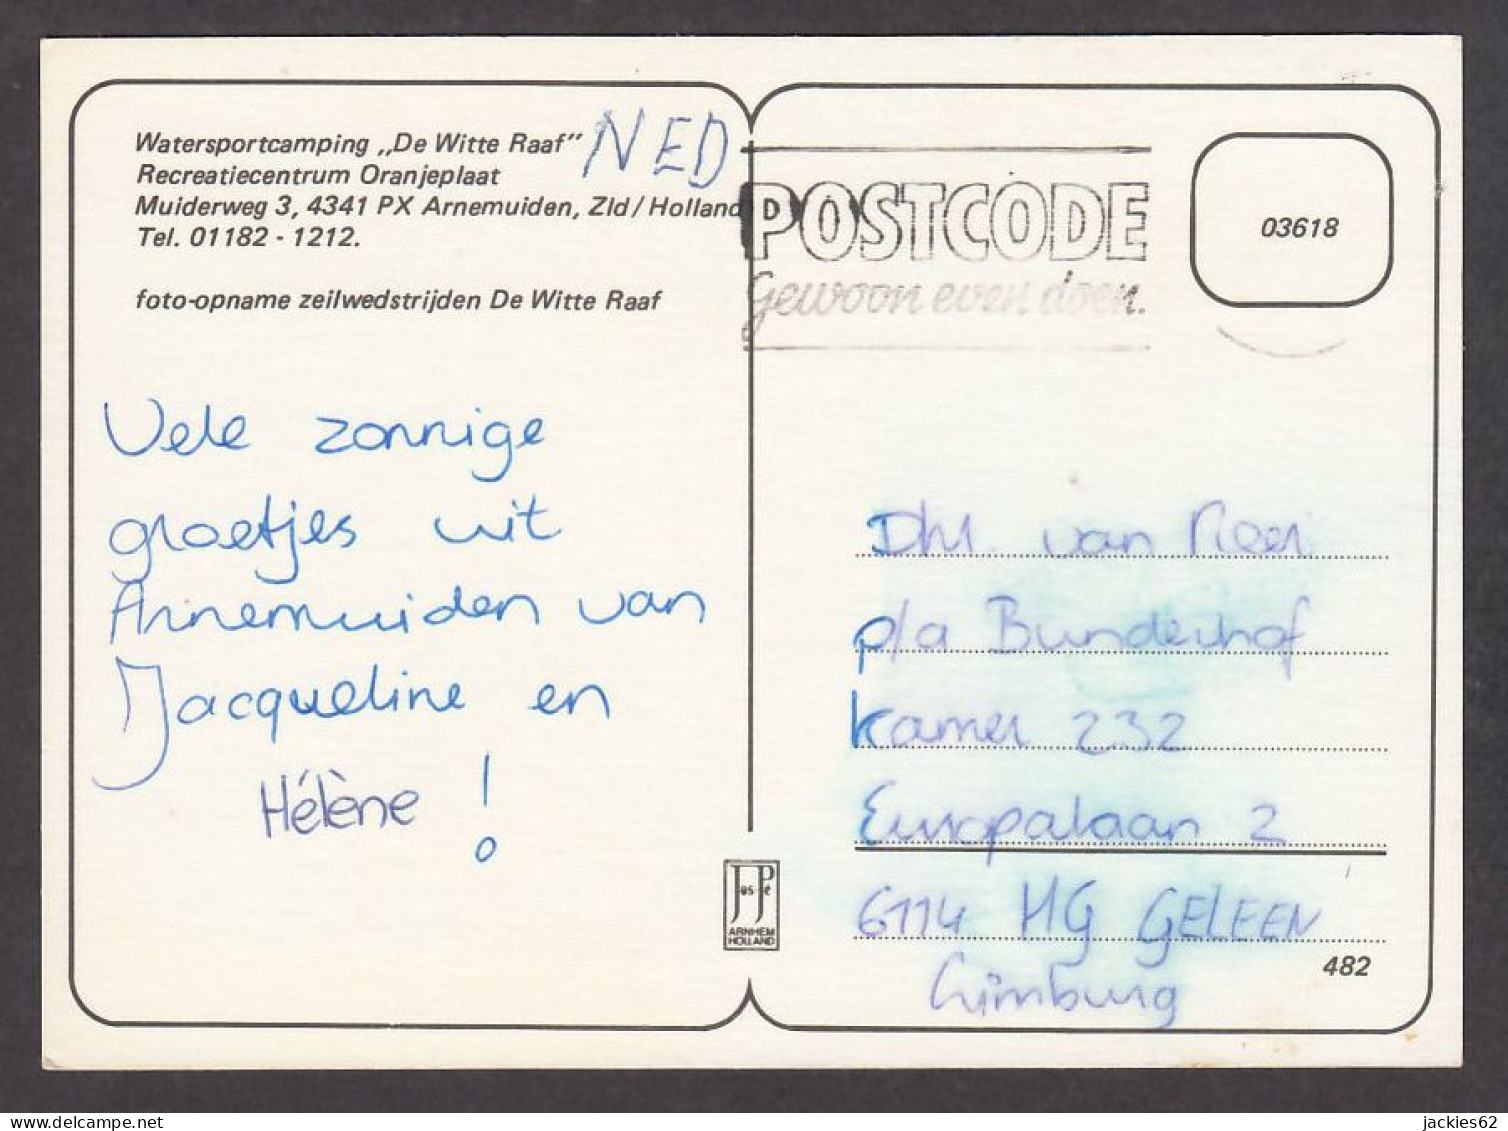 Watersportcamping „De Witte Raaf"
Recreatiecentrum Oranjeplaat
Muiderweg 3, 4341 PX Arnemuiden, Zld/Holland
Tel. 01182 - 1212.
foto-opname zeilwedstrijden De Witte Raaf
NED
POSTCODE
Gewoon even doen.
03618
Vele zonnige
groetjes uit
Arnemuiden van
Jacqueline en
Hélène !
Dhr. van Neer
p/a Bunderhof
kamer 232
Europalaan 2
6114 HG GELEEN
Limburg
482
Jos Pé
ARNHEM
HOLLAND
delcampe.net
jackies62